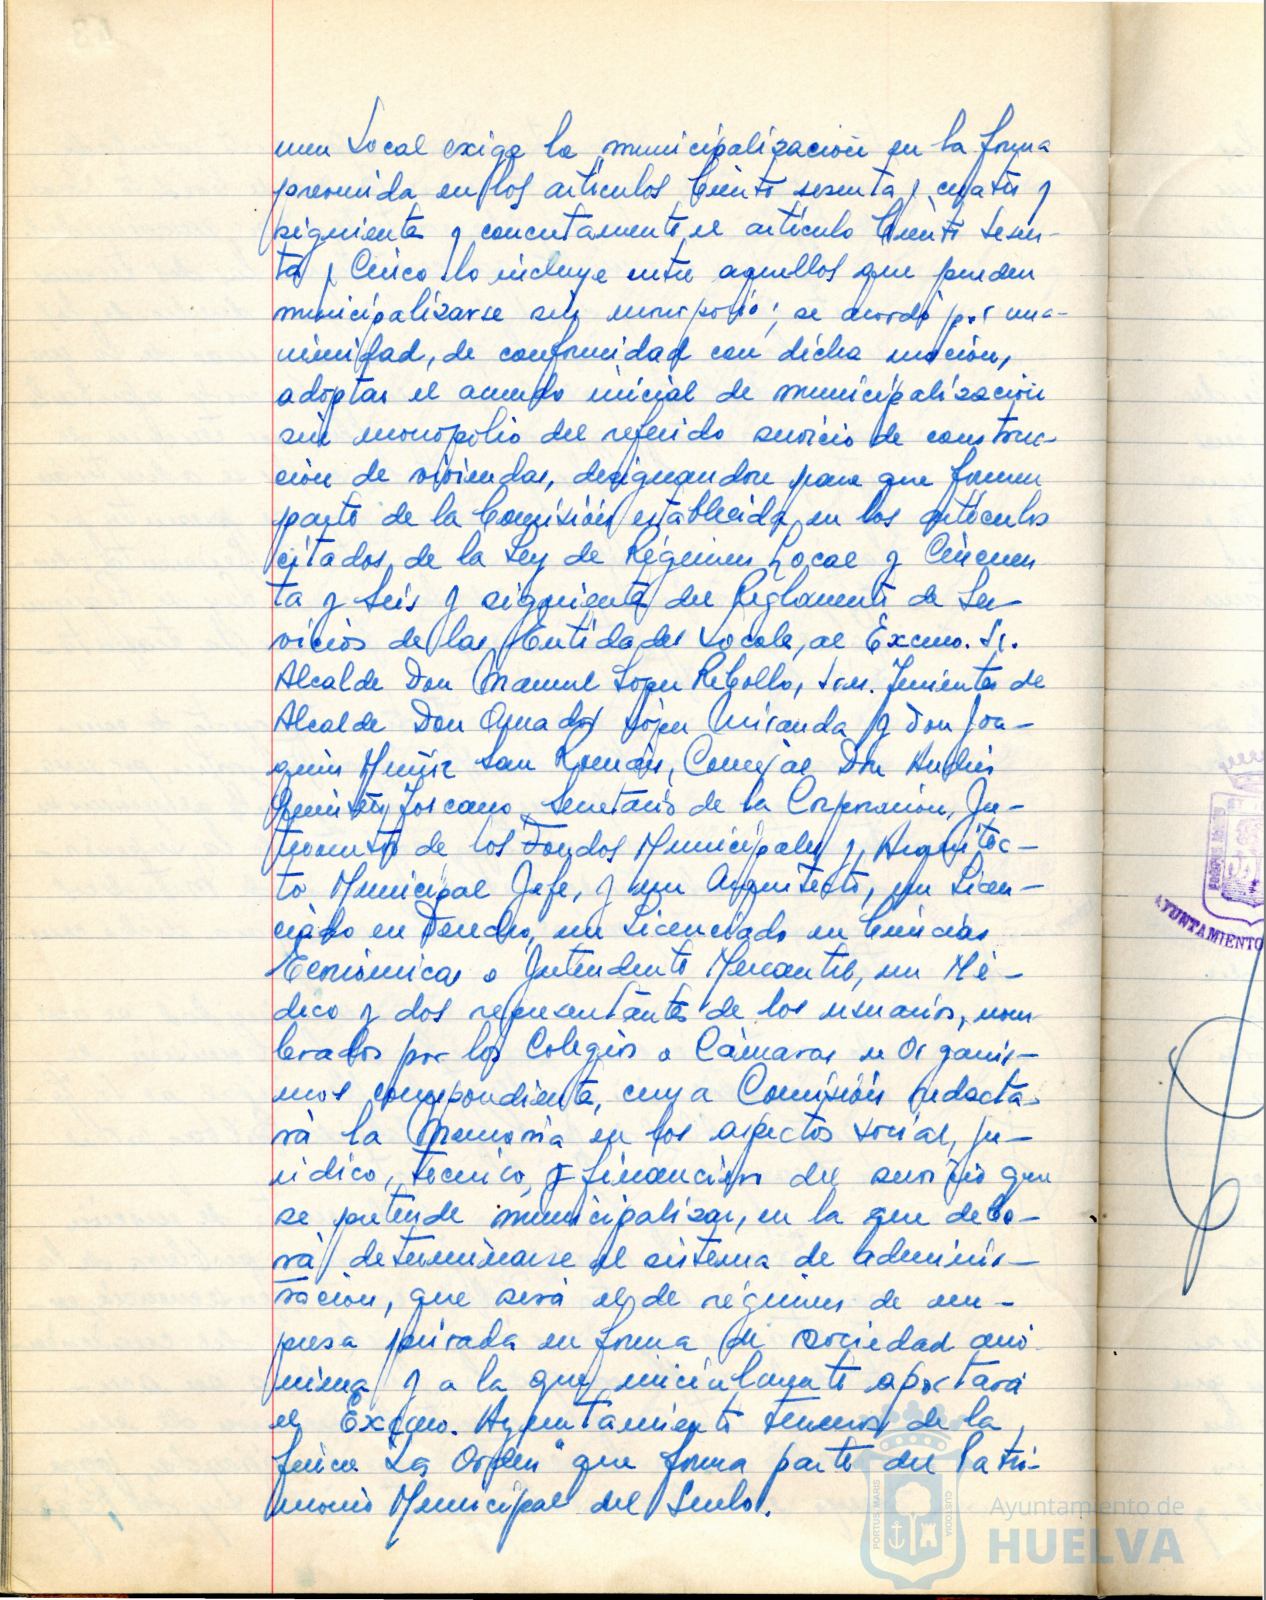 men Local exige la municipalización en la forma
prevenida en los artículos Ciento sesenta y cuatro y
siguientes y concretamente el artículo Ciento Sesen-
ta y Cinco lo incluye entre aquellos que pueden
municipalizarse sin monopolio; se acordó por una-
nimidad, de conformidad con dicha moción,
adoptar el acuerdo inicial de municipalización
sin monopolio del referido servicio de construc-
ción de viviendas, designandose para que formen
parte de la Comisión establecida en los artículos
citados de la Ley de Régimen Local y Cincuen
ta y Seis y siguientes del Reglamento de Ser-
vicios de las Entidades Locales, al Excmo. Sr.
Alcalde Don Manuel López Rebollo, Sres. Tenientes de
Alcalde Don Amador López Miranda y Don Joa-
quin Muñiz San Román, Concejal Don Andrés
Toscano, Secretario de la Corporación, In-
terventor de los Fondos Municipales y Arquitec-
to Municipal Jefe, y un Arquitecto, un Licen-
ciado en Derecho, un Licenciado en Ciencias
Económicas o Intendente Mercantil, un Mé-
dico y dos representantes de los usuarios, nom
brados por los Colegios o Cámaras u Organis-
mos correspondientes, cuya Comisión redacta-
rá la Memoria en los aspectos social, ju-
ridico, técnico y financiero del servicio que
se pretende municipalizar, en la que debe-
rá determinarse el sistema de adminis-
tración, que será el de régimen de em-
presa privada en forma de sociedad anó
nima y a la que inicialmente aportará
el Excmo. Ayuntamiento terrenos de la
finca "La Orden" que forma parte del Patri-
monio Municipal del Suelo.
AYUNTAMIENTO
PORTUS MARIS
CUSTODIA
Ayuntamiento de
HUELVA